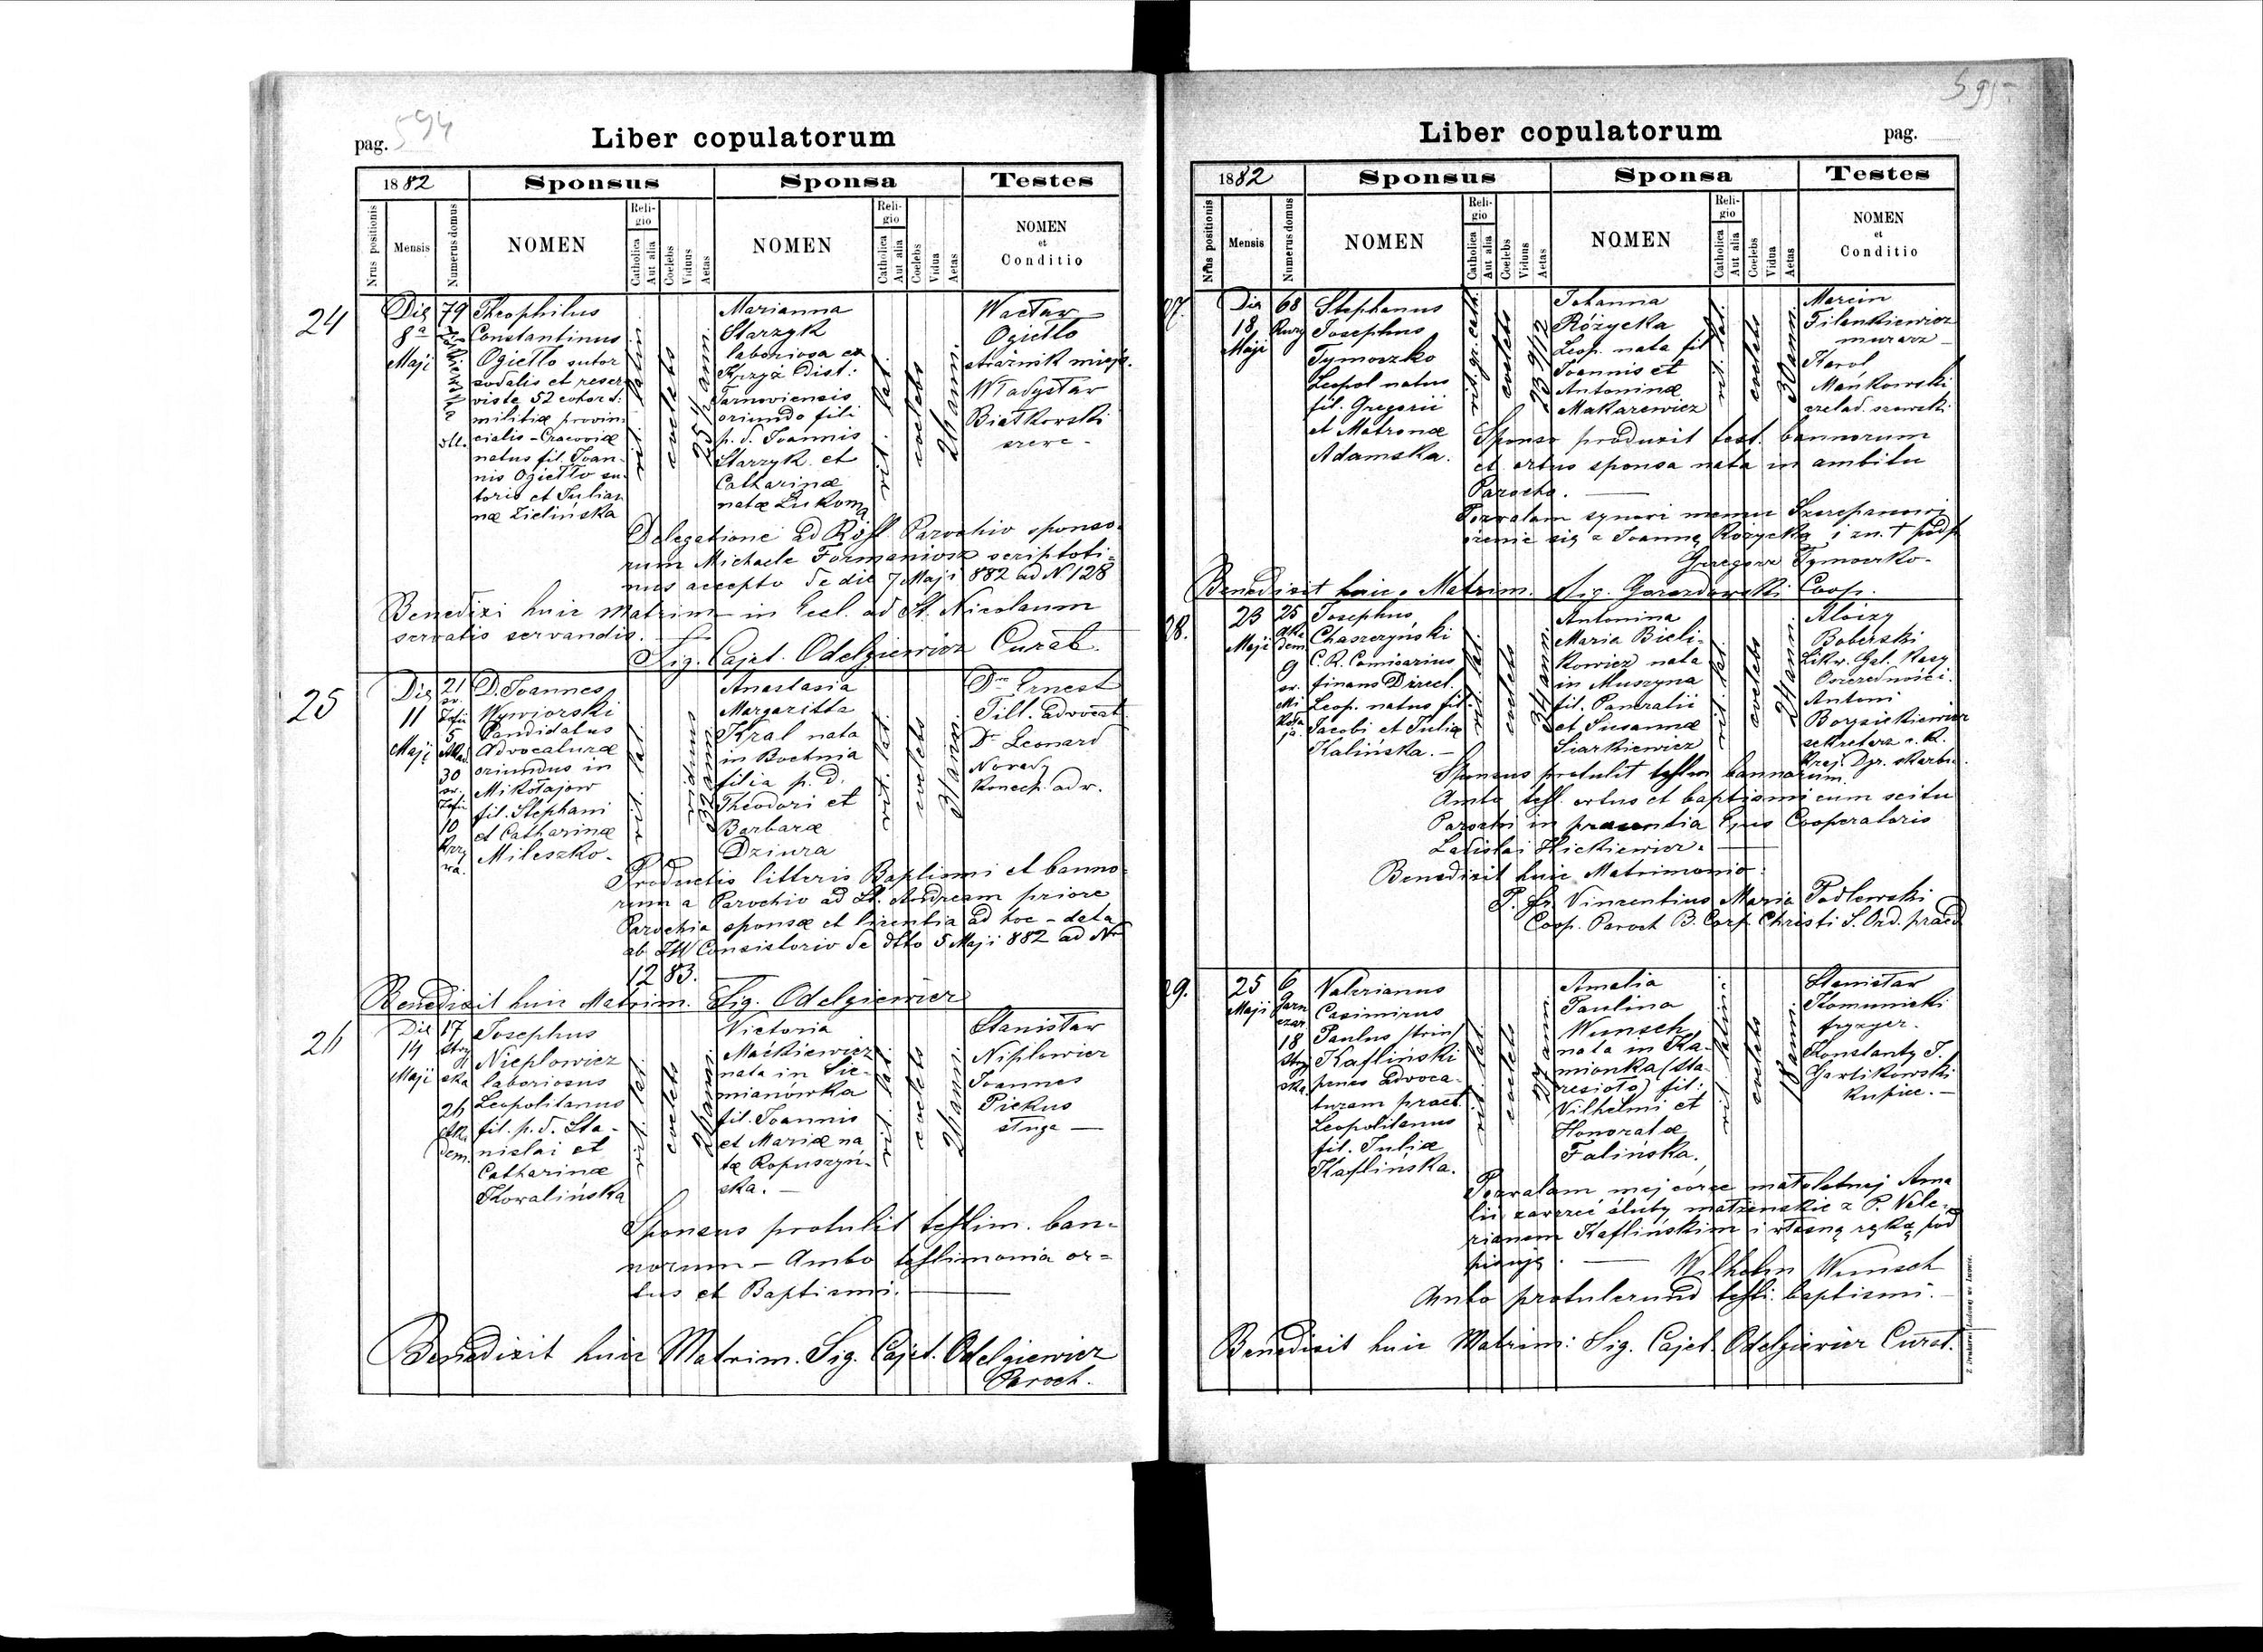 pag. 594
Liber copulatorum
1882
Sponsus
Sponsa
Testes
Nrus positionis
Mensis
Numerus domus
NOMEN
Religio
Catholica
Aut alia
Coelebs
Viduus
Aetas
NOMEN
Religio
Catholica
Aut alia
Coelebs
Vidua
Aetas
NOMEN
et
Conditio
24
Die
8a
Maji
79
Theophilus
Constantinus
Ogietto sutor
sodalis et reser
viste 52 cohort:
militiæ provin
cialis - Cracoviæ
natus fil. Joan-
nis Ogietto su-
toris et Julian
næ Zielińska
rit. latin.
coelebs
25 1/2 ann.
Marianna
Starzyk
laboriosa ex
Krzyż Dist:
Tarnoviensis
oriundo fili
p. d. Joannis
Starzyk et
Catharinæ
natæ Łukoma
rit. lat.
coelebs
26 ann.
Wacław
Ogietto
strażnik miejs.
Władysław
Białkowski
szewc -
Delegatione ad Parochio sponso-
rum Michaele Formaniosz scriptoti-
nus accepto de die 7 Maji 882 ad N 128
Benedixi huic matrim- in Eccl. ad St. Nicolaum
servatis servandis.
Sig. Cajet. Odelgiewicz Curat.
25
Die
11
Maji
21
św.
Zofii
5
30
św.
Zofii
10
D. Joannes
Wywiorski
Candidatus
Advocaturæ
oriundus in
Mikołajow
fil. Stephani
et Catharinæ
Mileszko-
rit. lat.
viduus
32 ann.
Anastasia
Margaritta
Kral nata
in Bochnia
filia p. d.
Theodori et
Barbaræ
Dziura
rit. lat.
coelebs
31 ann.
Dr Ernest
Till. advocat
Dr Leonard
Konech adw.
Productis litteris Baptismi et banno-
rum a Parochio ad St. Andream priore
Parochia sponsæ et licentia ad hoc - data
ab Consistorio de dtto 5 Maji 882 ad Nr
1283.
Benedixit huic Matrim. Sig. Odelgiewicz
26
Die
14
Maji
17
Stry
ska
26
Aka
dem.
Josephus
Nieplowicz
laboriosus
Leopolitanus
fil. p. d. Sta-
nislai et
Catharinæ
Kowalińska
rit. lat.
coelebs
26 anni.
Victoria
Maćkiewicz
nata in Sie-
mianówka
fil. Joannis
et Mariæ na
tæ Ropuszyń-
ska. -
rit. lat.
coelebs
26 ann.
Stanisław
Niplowicz
Joannes
Piekus
sługa -
Sponsus protulit testim. ban-
norum - Ambo testimonia or=
tus et Baptismi.
Benedixit huic Matrim. Sig. Cajet. Odelgiewicz
Paroch.
595
Liber copulatorum
pag.
1882
Sponsus
Sponsa
Testes
Nrus positionis
Mensis
Numerus domus
NOMEN
Religio
Catholica
Aut alia
Coelebs
Viduus
Aetas
NOMEN
Religio
Catholica
Aut alia
Coelebs
Vidua
Aetas
NOMEN
et
Conditio
27.
Die
18
Maji
68
Stephanus
Josephus
Tymoszko
Leopol natus
fil. Gregorii
et Matronæ
Adamska.
rit. gr. cath.
coelebs
23 9/12
Johanna
Różycka
Leop. nata fil
Joannis et
Antoninæ
Makarewicz
rit. lat.
coelebs
30 ann.
Marcin
Filenkiewicz
murarz -
Karol
Mańkowski
czelad. szewski
Sponso produxit test. bannorum
et ortus sponsa nata in ambitu
Parocho.
Pozwalam synowi memu Szczepanowi
żenić się z Joanną Różycką i zn. + podp
Grzegorz Tymoszko-
Benedixit huic Matrim. Sig. Gorazdowski Coop.
28.
23
Maji
25
Aka
dem
9
św.
Mi
koła
ja.
Josephus
Chaszczyński
C. R. Comisarius
finans Direct.
Leop. natus fil.
Jacobi et Juliæ
Kalińska. -
rit. lat.
coelebs
34 ann.
Antonina
Maria Bieli-
kowicz nata
in Muszyna
fil. Pancratii
et Susannæ
Siarkiewicz
rit. lat.
coelebs
24 ann.
Aloizy
Boberski
Likw. Gal. Kasy
Oszczedności.
Antoni
Borysiekiewicz
sekretarz c. K.
Kraj. Dyr. skarbu.
Sponsus protulit testim bannorum.
Ambo test. ortus et baptismi cum scitu
Parochi in præsentia Ejus Cooperatoris
Ladislai Hickiewicz.
Benedixit huic Matrimonio
P. fr. Vincentius Maria Podlewski
Coop. Paroch B. Corp. Christi S. Ord. praed
29.
25
Maji
6
Garn
czar.
18
Stry
ska.
Valerianus
Casimirus
Paulus /trin/
Kaflinski
penes advoca-
turam pract.
Leopolitanus
fil. Juliæ
Kaflińska.
rit. lat.
coelebs
27 ann.
Amalia
Paulina
Wunsch
nata in Ka-
mionka (Sta-
resioło) fil:
Vilhelmi et
Honoratæ
Falińska.
rit. latin.
coelebs
18 anni.
Stanisław
Komunicki
fryzyer.
Konstanty J.
Garlikowski
kupiec. -
Pozwalam mej córce małoletnej Ama
lii zawrzeć śluby małżenskie z P. Vale-
rianem Kaflińskim i własną ręką pod
pisuję.
Wilhelm Wunsch
Ambo protulerund testi. baptismi. -
Benedixit huic Matrim: Sig. Cajet. Odelgiewicz Curat.
Z Drukarni Ludowej we Lwowie.